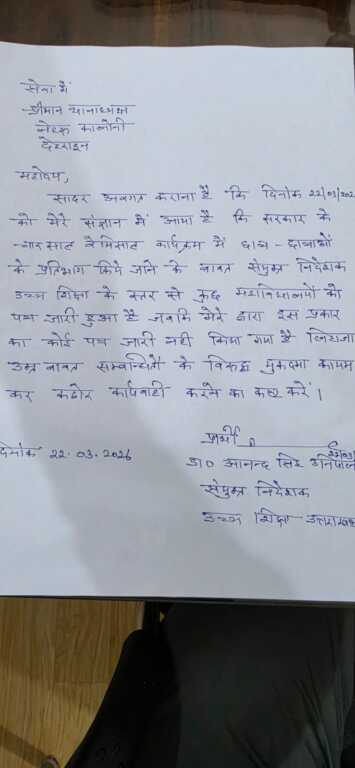 सेवा में
श्रीमान थानाध्यक्ष
नेहरू कालोनी
देहरादून
महोदय,
सादर अवगत कराना है कि दिनांक 22/03/202
को मेरे संज्ञान में आया है कि सरकार के
चार साल बेमिसाल कार्यक्रम में छात्र-छात्राओं
के प्रतिभाग किये जाने के बावत संयुक्त निदेशक
उच्च शिक्षा के स्तर से कुछ महाविद्यालयों को
पत्र जारी हुआ है जबकि मेरे द्वारा इस प्रकार
का कोई पत्र जारी नहीं किया गया है लिहाजा
उक्त बावत सम्बन्धितों के विरुद्ध मुकदमा कायम
कर कठोर कार्यवाही करने का कष्ट करें।
प्रार्थी
दिनांक 22.03.2026
डा० आनन्द सिंह उनियाल
संयुक्त निदेशक
उच्च शिक्षा उत्तराखण्ड